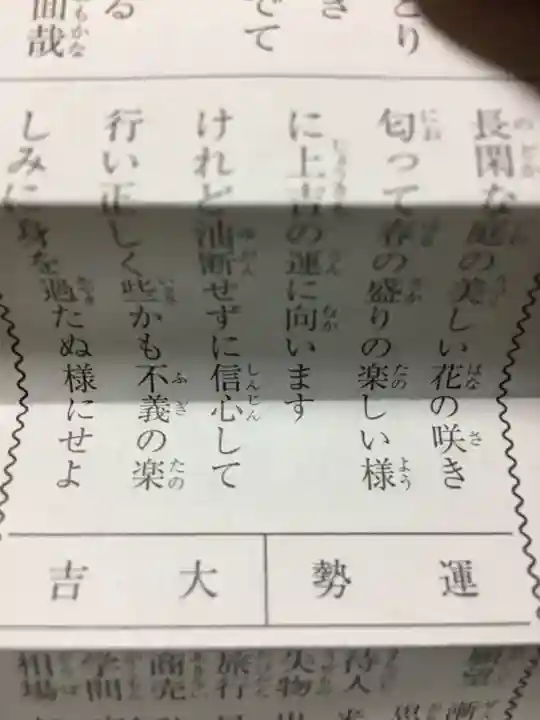 とり
さ
でて
る
面哉
長閑な庭の美しい花の咲き
匂って春の盛りの楽しい様
に上吉の運に向います
けれど油断せずに信心して
行い正しく些かも不義の楽
しみに身を過たぬ様にせよ
運勢
大吉
願望
待人
失物
旅行
商売
学問
相場